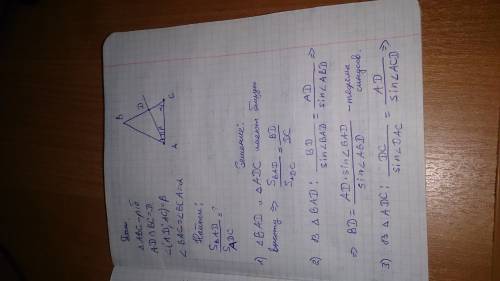 Дано:
△ABC - р/б
AD∩BC=D.
∠(AD;AC)=β
∠BAC=∠BCA=α
B
D
A
C
Найти:
S_BAD / S_ADC = ?
Решение:
1) △BAD и △ADC имеют общую
высоту ⇒ S_BAD / S_ADC = BD / DC
2) В △BAD: BD / sin∠BAD = AD / sin∠ABD ⇒
⇒ BD = AD·sin∠BAD / sin∠ABD - теорема синусов.
3) В △ADC: DC / sin∠DAC = AD / sin∠ACD ⇒